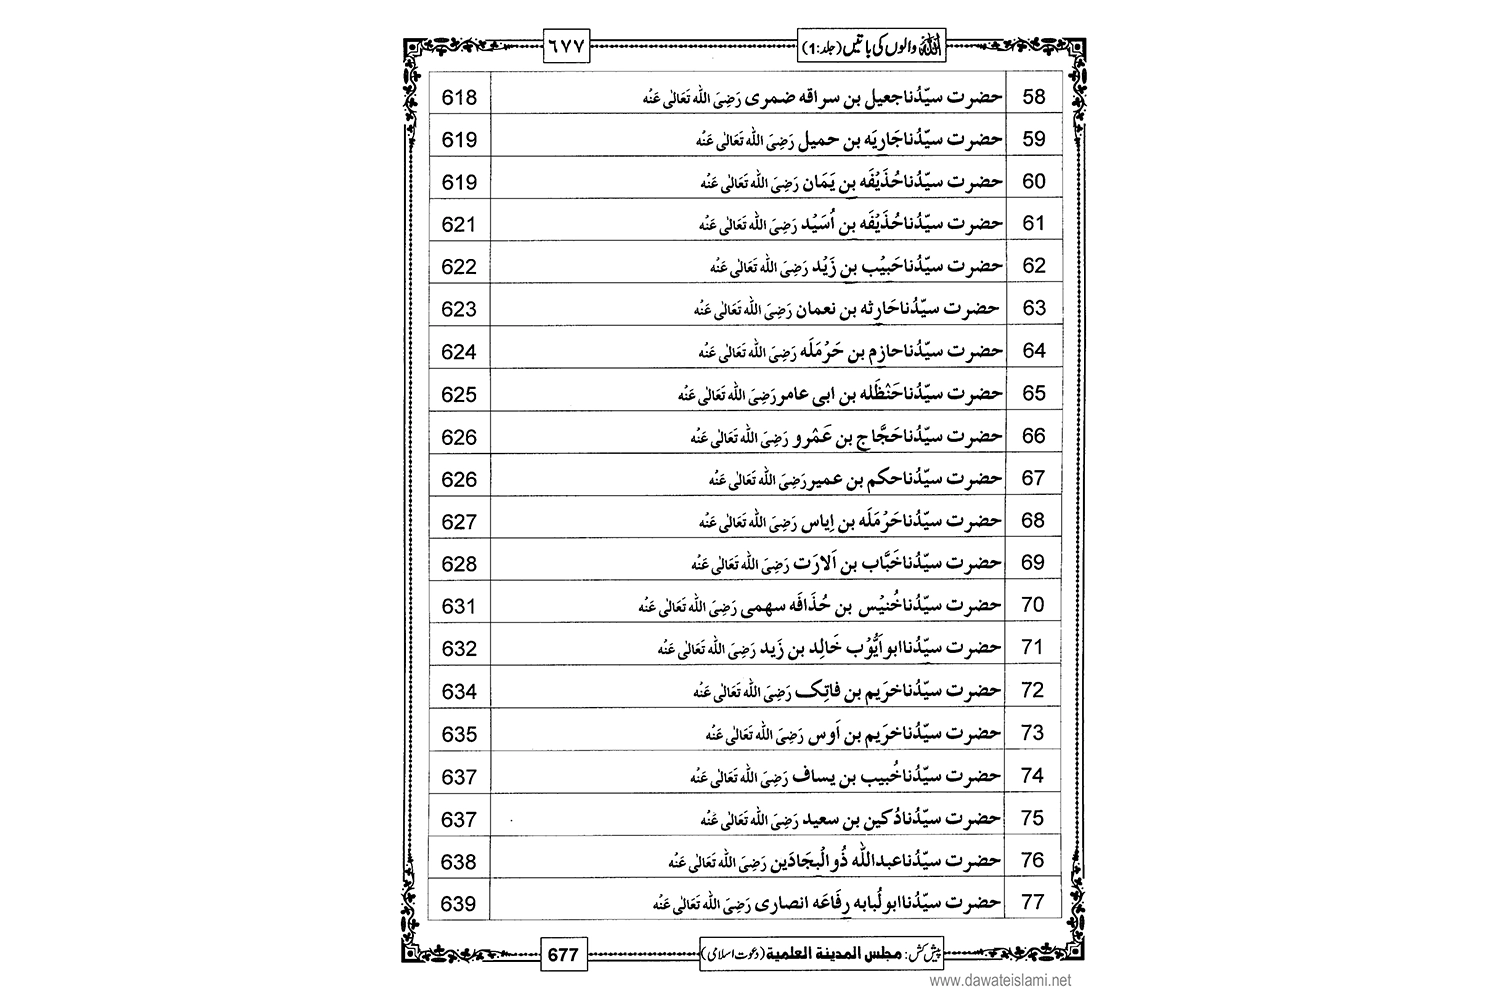 اللہ والوں کی باتیں (جلد:1) ٦٧٧
58 حضرت سیِّدُنا جعیل بن سراقہ ضمری رَضِیَ اللہ تَعَالٰی عَنْہ 618
59 حضرت سیِّدُنا جَارِیَہ بن حمیل رَضِیَ اللہ تَعَالٰی عَنْہ 619
60 حضرت سیِّدُنا حُذَیْفَہ بن یَمَان رَضِیَ اللہ تَعَالٰی عَنْہ 619
61 حضرت سیِّدُنا حُذَیْفَہ بن اُسَیْد رَضِیَ اللہ تَعَالٰی عَنْہ 621
62 حضرت سیِّدُنا حَبِیْب بن زَیْد رَضِیَ اللہ تَعَالٰی عَنْہ 622
63 حضرت سیِّدُنا حَارِثہ بن نعمان رَضِیَ اللہ تَعَالٰی عَنْہ 623
64 حضرت سیِّدُنا حازِم بن حَرْمَلَہ رَضِیَ اللہ تَعَالٰی عَنْہ 624
65 حضرت سیِّدُنا حَنْظَلہ بن ابی عامر رَضِیَ اللہ تَعَالٰی عَنْہ 625
66 حضرت سیِّدُنا حَجَّاج بن عَمْرو رَضِیَ اللہ تَعَالٰی عَنْہ 626
67 حضرت سیِّدُنا حکم بن عمیر رَضِیَ اللہ تَعَالٰی عَنْہ 626
68 حضرت سیِّدُنا حَرْمَلَہ بن اِیاس رَضِیَ اللہ تَعَالٰی عَنْہ 627
69 حضرت سیِّدُنا خَبَّاب بن اَلارَت رَضِیَ اللہ تَعَالٰی عَنْہ 628
70 حضرت سیِّدُنا خُنَیْس بن حُذَافَہ سہمی رَضِیَ اللہ تَعَالٰی عَنْہ 631
71 حضرت سیِّدُنا ابو اَیُّوْب خَالِد بن زَید رَضِیَ اللہ تَعَالٰی عَنْہ 632
72 حضرت سیِّدُنا خرَیم بن فاتِک رَضِیَ اللہ تَعَالٰی عَنْہ 634
73 حضرت سیِّدُنا خرَیم بن اَوس رَضِیَ اللہ تَعَالٰی عَنْہ 635
74 حضرت سیِّدُنا خُبیب بن یساف رَضِیَ اللہ تَعَالٰی عَنْہ 637
75 حضرت سیِّدُنا دُکین بن سعید رَضِیَ اللہ تَعَالٰی عَنْہ 637
76 حضرت سیِّدُنا عبداللہ ذُوالْبِجَادَین رَضِیَ اللہ تَعَالٰی عَنْہ 638
77 حضرت سیِّدُنا ابولُبابہ رِفَاعَہ انصاری رَضِیَ اللہ تَعَالٰی عَنْہ 639
پیش کش: مجلس المدینة العلمیة (دعوت اسلامی) 677
www.dawateislami.net